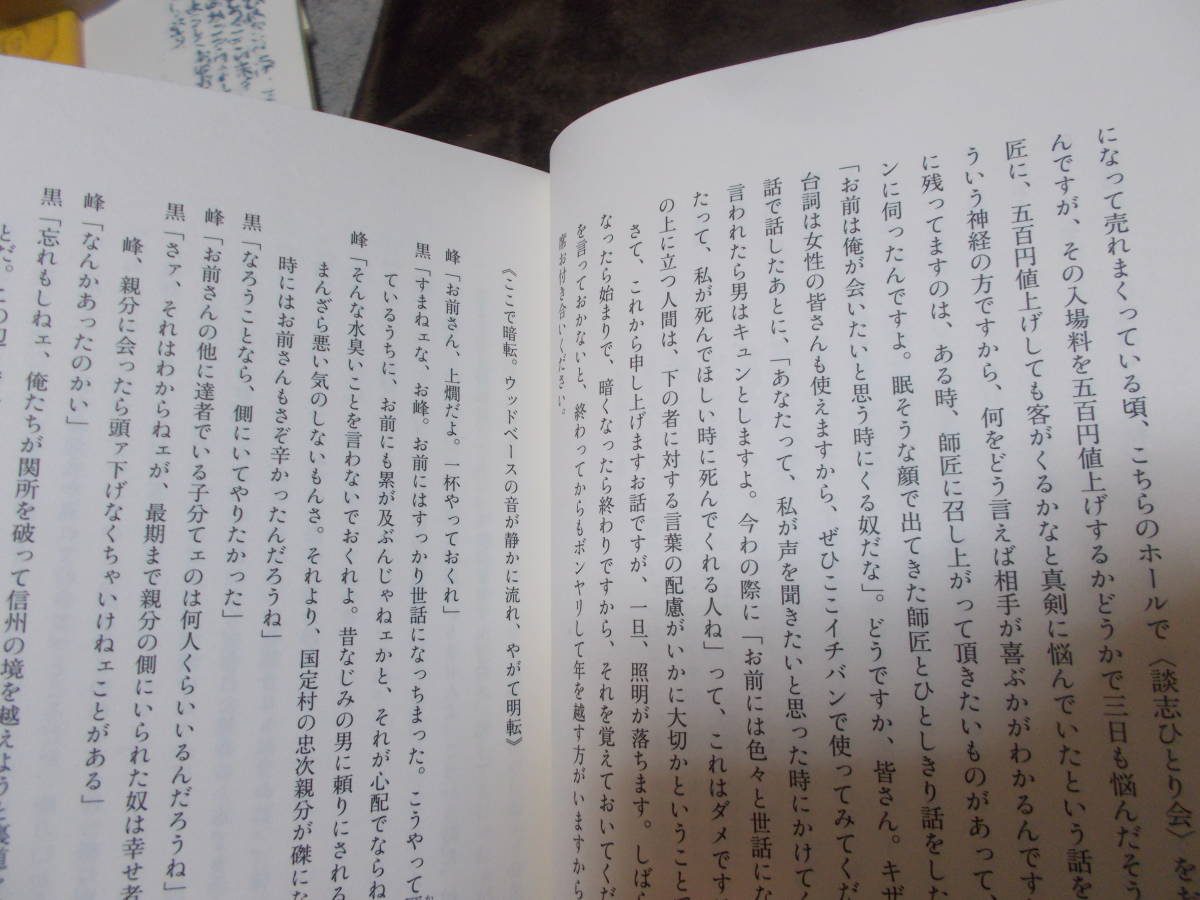 になって売れまくっている頃、こちらのホールで〈談志ひとり会〉を
んですが、その入場料を五百円値上げするかどうかで三日も悩んだそう
匠に、五百円値上げしても客がくるかなと真剣に悩んでいたという話を
ういう神経の方ですから、何をどう言えば相手が喜ぶかがわかるんです
に残ってますのは、ある時、師匠に召し上がって頂きたいものがあって、
ンに伺ったんですよ。眠そうな顔で出てきた師匠とひとしきり話をした
「お前は俺が会いたいと思う時にくる奴だな」。どうですか、皆さん。キザ
台詞は女性の皆さんも使えますから、ぜひここイチバンで使ってみてくだ
話で話したあとに、「あなたって、私が声を聞きたいと思った時にかけてく
言われたら男はキュンとしますよ。今わの際に「お前には色々と世話にな
たって、私が死んでほしい時に死んでくれる人ね」って、これはダメです
の上に立つ人間は、下の者に対する言葉の配慮がいかに大切かということ
さて、これから申し上げますお話ですが、一旦、照明が落ちます。しばら
なったら始まりで、暗くなったら終わりですから、それを覚えておいてくだ
を言っておかないと、終わってからもボンヤリして年を越す方がいますから
席お付き合いください。
《ここで暗転。ウッドベースの音が静かに流れ、やがて明転》
峰「お前さん、上燗だよ。一杯やっておくれ」
黒「すまねェな、お峰。お前にはすっかり世話になっちまった。こうやって
ているうちに、お前にも累が及ぶんじゃねェかと、それが心配でならね
峰「そんな水臭いことを言わないでおくれよ。昔なじみの男に頼りにされる
まんざら悪い気のしないもんさ。それより、国定村の忠次親分が磔にな
時にはお前さんもさぞ辛かったんだろうね」
黒「なろうことなら、側にいてやりたかった」
峰「お前さんの他に達者でいる子分てェのは何人くらいいるんだろうね」
黒「さァ、それはわからねェが、最期まで親分の側にいられた奴は幸せ者
峰、親分に会ったら頭ァ下げなくちゃいけねェことがある」
峰「なんかあったのかい」
黒「忘れもしねェ、俺たちが関所を破って信州の境を越えようと裏道
とだ。この辺